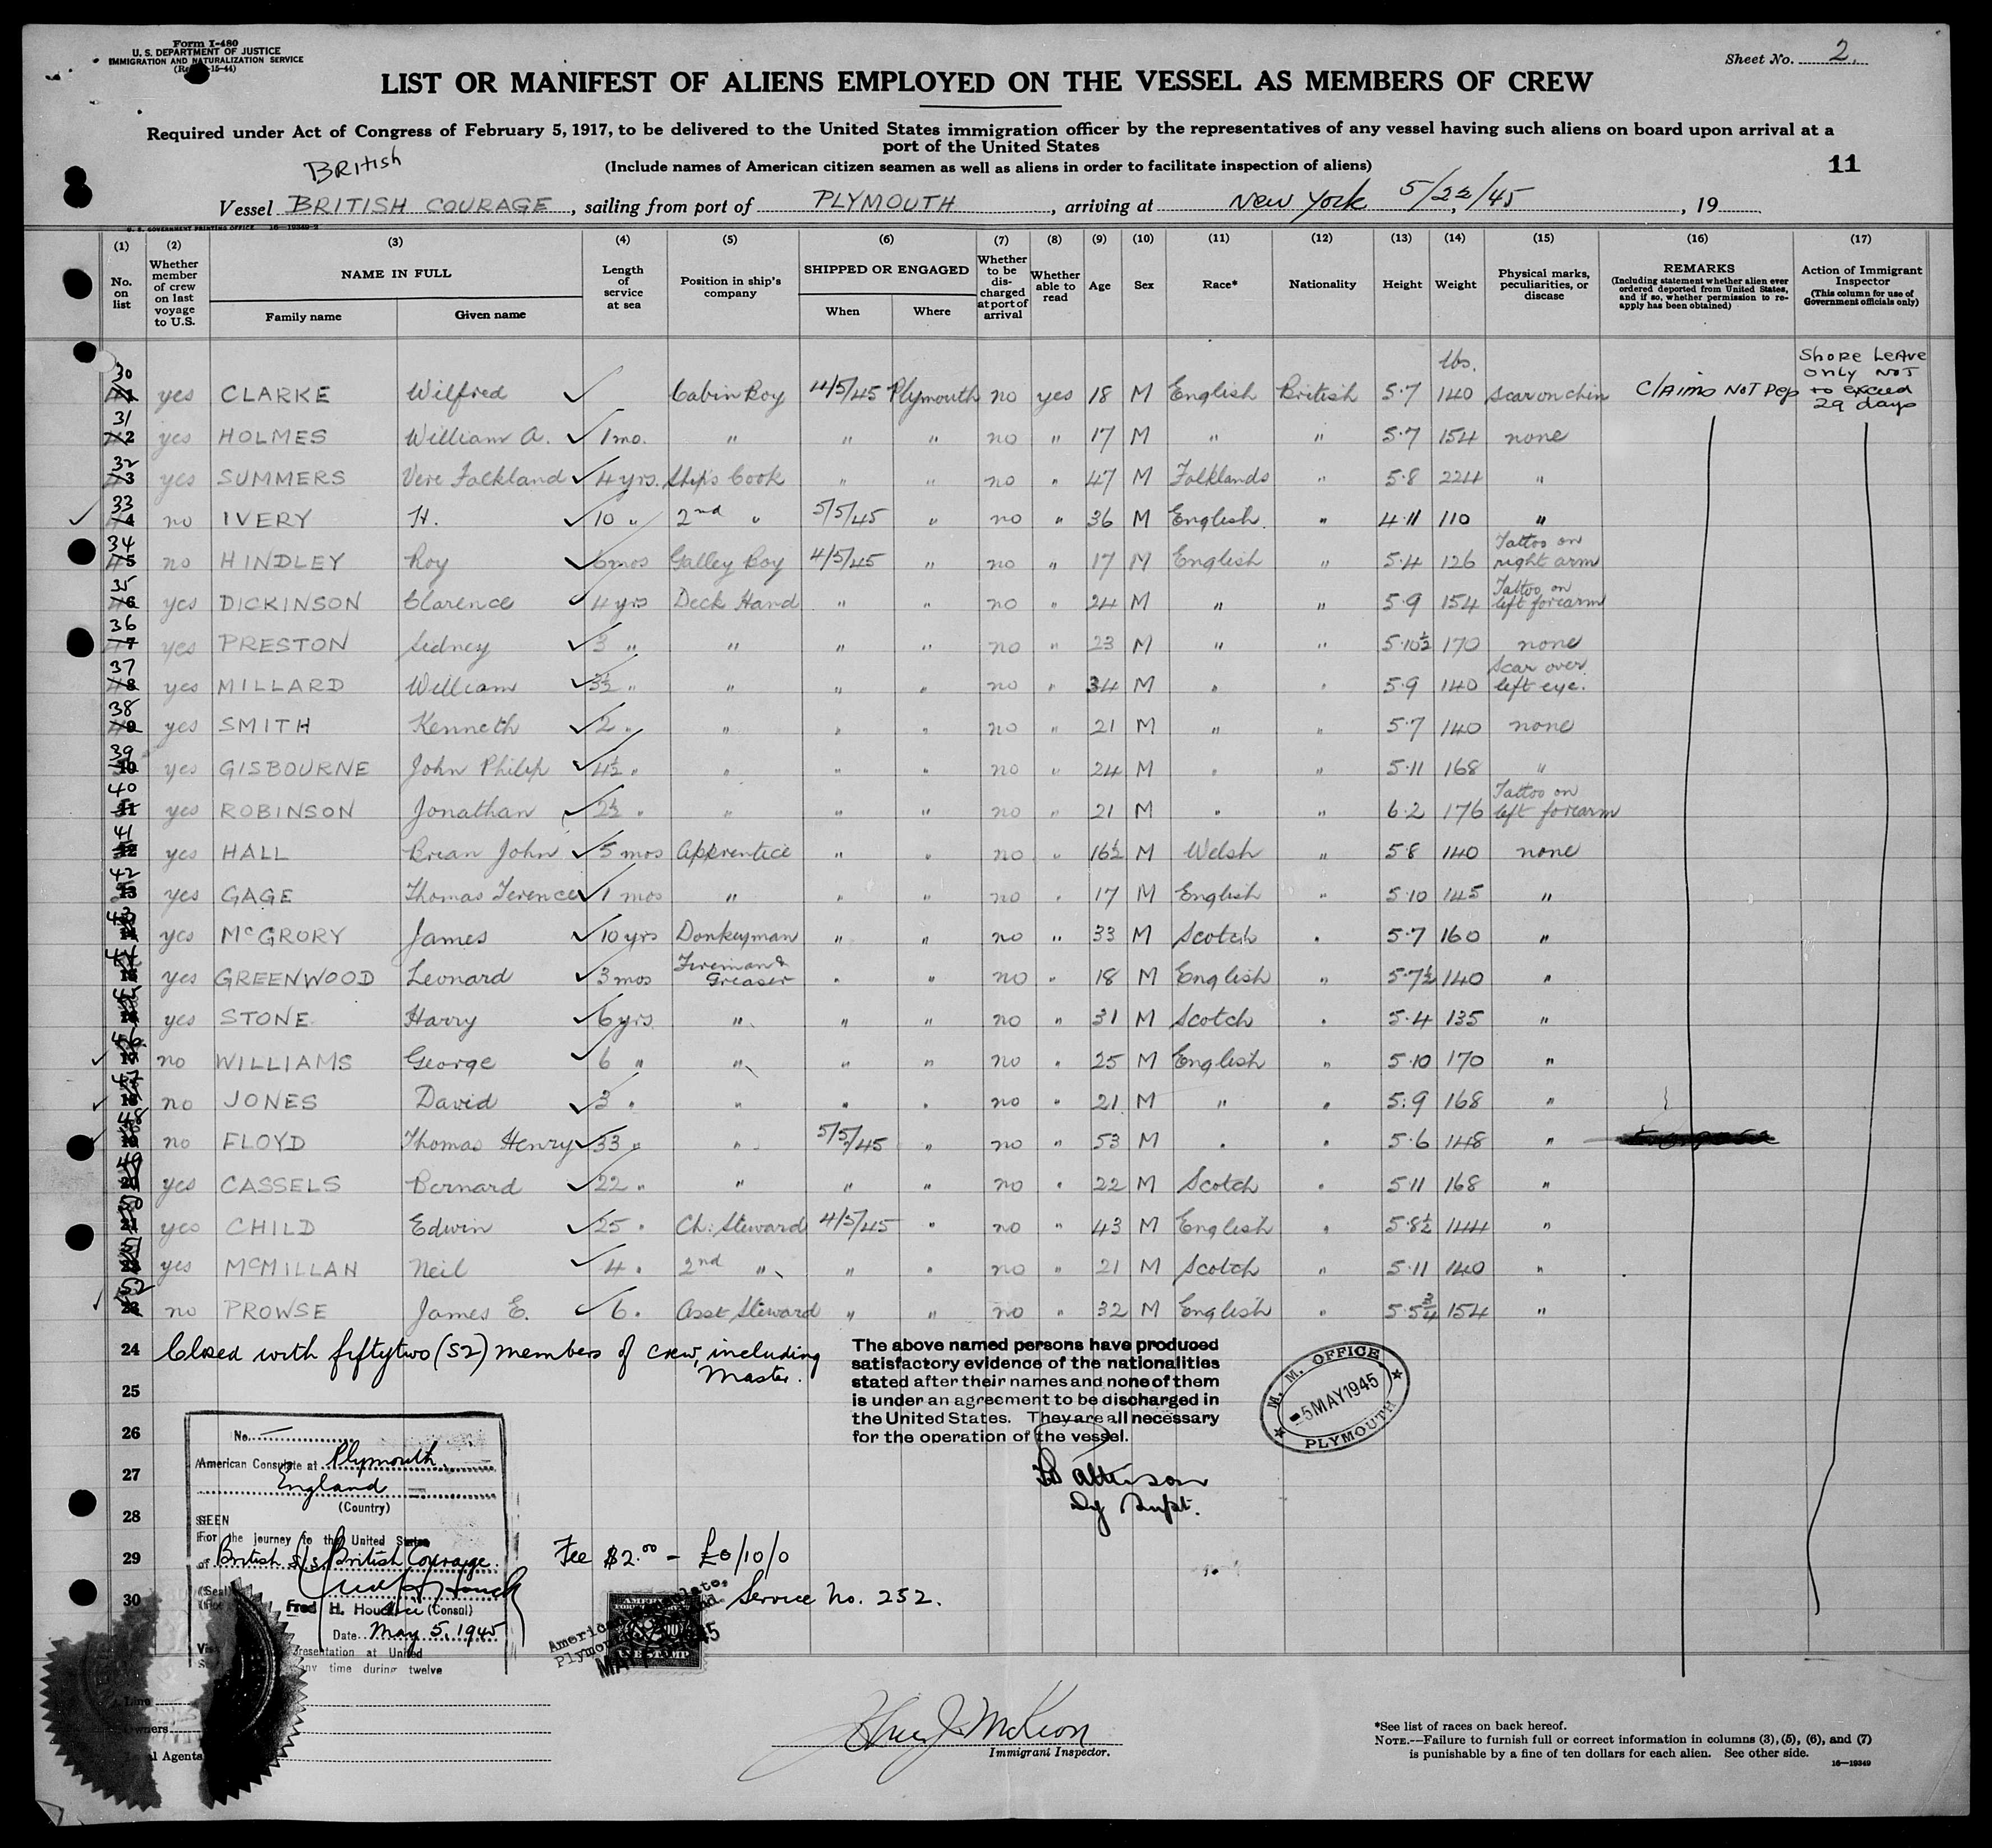 Form I-480
U. S. DEPARTMENT OF JUSTICE
IMMIGRATION AND NATURALIZATION SERVICE
-15-44)
Sheet No. 2.
LIST OR MANIFEST OF ALIENS EMPLOYED ON THE VESSEL AS MEMBERS OF CREW
Required under Act of Congress of February 5, 1917, to be delivered to the United States immigration officer by the representatives of any vessel having such aliens on board upon arrival at a
port of the United States
(Include names of American citizen seamen as well as aliens in order to facilitate inspection of aliens)
11
British
Vessel BRITISH COURAGE, sailing from port of PLYMOUTH, arriving at New York 5/22/45, 19
U. S. GOVERNMENT PRINTING OFFICE 16—19349-2
(1) (2) (3) (4) (5) (6) (7) (8) (9) (10) (11) (12) (13) (14) (15) (16) (17)
No. on list
Whether member of crew on last voyage to U.S.
NAME IN FULL
Family name
Given name
Length of service at sea
Position in ship's company
SHIPPED OR ENGAGED
When
Where
Whether to be discharged at port of arrival
Whether able to read
Age
Sex
Race*
Nationality
Height
Weight
Physical marks, peculiarities, or disease
REMARKS
(Including statement whether alien ever ordered deported from United States, and if so, whether permission to reapply has been obtained)
Action of Immigrant Inspector
(This column for use of Government officials only)
lbs.
Shore Leave only not to exceed 29 days
30 yes CLARKE Wilfred Cabin Boy 4/5/45 Plymouth no yes 18 M English British 5·7 140 scar on chin Claims Not Dep
31 yes HOLMES William A. 1 mo. " " " no " 17 M " " 5·7 154 none
32 yes SUMMERS Vere Falckland 4 yrs. Ship's Cook " " no " 47 M Falklands " 5·8 224 "
33 no IVERY H. 10 " 2nd " 5/5/45 " no " 36 M English " 4·11 110 "
34 no HINDLEY Roy 6 mos Galley Boy 4/5/45 " no " 17 M English " 5·4 126 Tattoo on right arm
35 yes DICKINSON Clarence 4 yrs Deck Hand " " no " 24 M " " 5·9 154 Tattoo on left forearm
36 yes PRESTON Sidney 3 " " " " no " 23 M " " 5·10½ 170 none
37 yes MILLARD William 3½ " " " " no " 34 M " " 5·9 140 Scar over left eye.
38 yes SMITH Kenneth 2 " " " " no " 21 M " " 5·7 140 none
39 yes GISBOURNE John Philip 4½ " " " " no " 24 M " " 5·11 168 "
40 yes ROBINSON Jonathan 2½ " " " " no " 21 M " " 6·2 176 Tattoo on left forearm
41 yes HALL Brian John 5 mos Apprentice " " no " 16½ M Welsh " 5·8 140 none
42 yes GAGE Thomas Terence 1 mos " " " no " 17 M English " 5·10 145 "
43 yes McGRORY James 10 yrs Donkeyman " " no " 33 M Scotch " 5·7 160 "
44 yes GREENWOOD Leonard 3 mos Fireman & Greaser " " no " 18 M English " 5·7½ 140 "
45 yes STONE Harry 6 yrs " " " no " 31 M Scotch " 5·4 135 "
46 no WILLIAMS George 6 " " " " no " 25 M English " 5·10 170 "
47 no JONES David 3 " " " " no " 21 M " " 5:9 168 "
48 no FLOYD Thomas Henry 33 " " 5/5/45 " no " 53 M " " 5·6 148 "
49 yes CASSELS Bernard 22 " " " " no " 22 M Scotch " 5·11 168 "
50 yes CHILD Edwin 25 " Ch. Steward 4/5/45 " no " 43 M English " 5·8½ 144 "
51 yes McMILLAN Neil 4 " 2nd " " " no " 21 M Scotch " 5·11 140 "
52 no PROWSE James E. 6 " Asst Steward " " no " 32 M English " 5·5¾ 154 "
24 Closed with fiftytwo (52) members of crew, including
Master.
25
26
27
28
29
30
The above named persons have produced
satisfactory evidence of the nationalities
stated after their names and none of them
is under an agreement to be discharged in
the United States. They are all necessary
for the operation of the vessel.
Dy Supt.
M. M. OFFICE
-5 MAY 1945
PLYMOUTH
No.
American Consulate at Plymouth
England
(Country)
SEEN
For the journey to the United States
of British S/s British Courage
(Seal)
Fred H. Houck (Consul)
Date May 5, 1945
presentation at United
any time during twelve
Fee $2.00 – £0/10/0
Service No. 252.
Line
Owners
Agents
John J. McKeon
Immigrant Inspector.
*See list of races on back hereof.
NOTE.—Failure to furnish full or correct information in columns (3), (5), (6), and (7)
is punishable by a fine of ten dollars for each alien. See other side.
16—19349